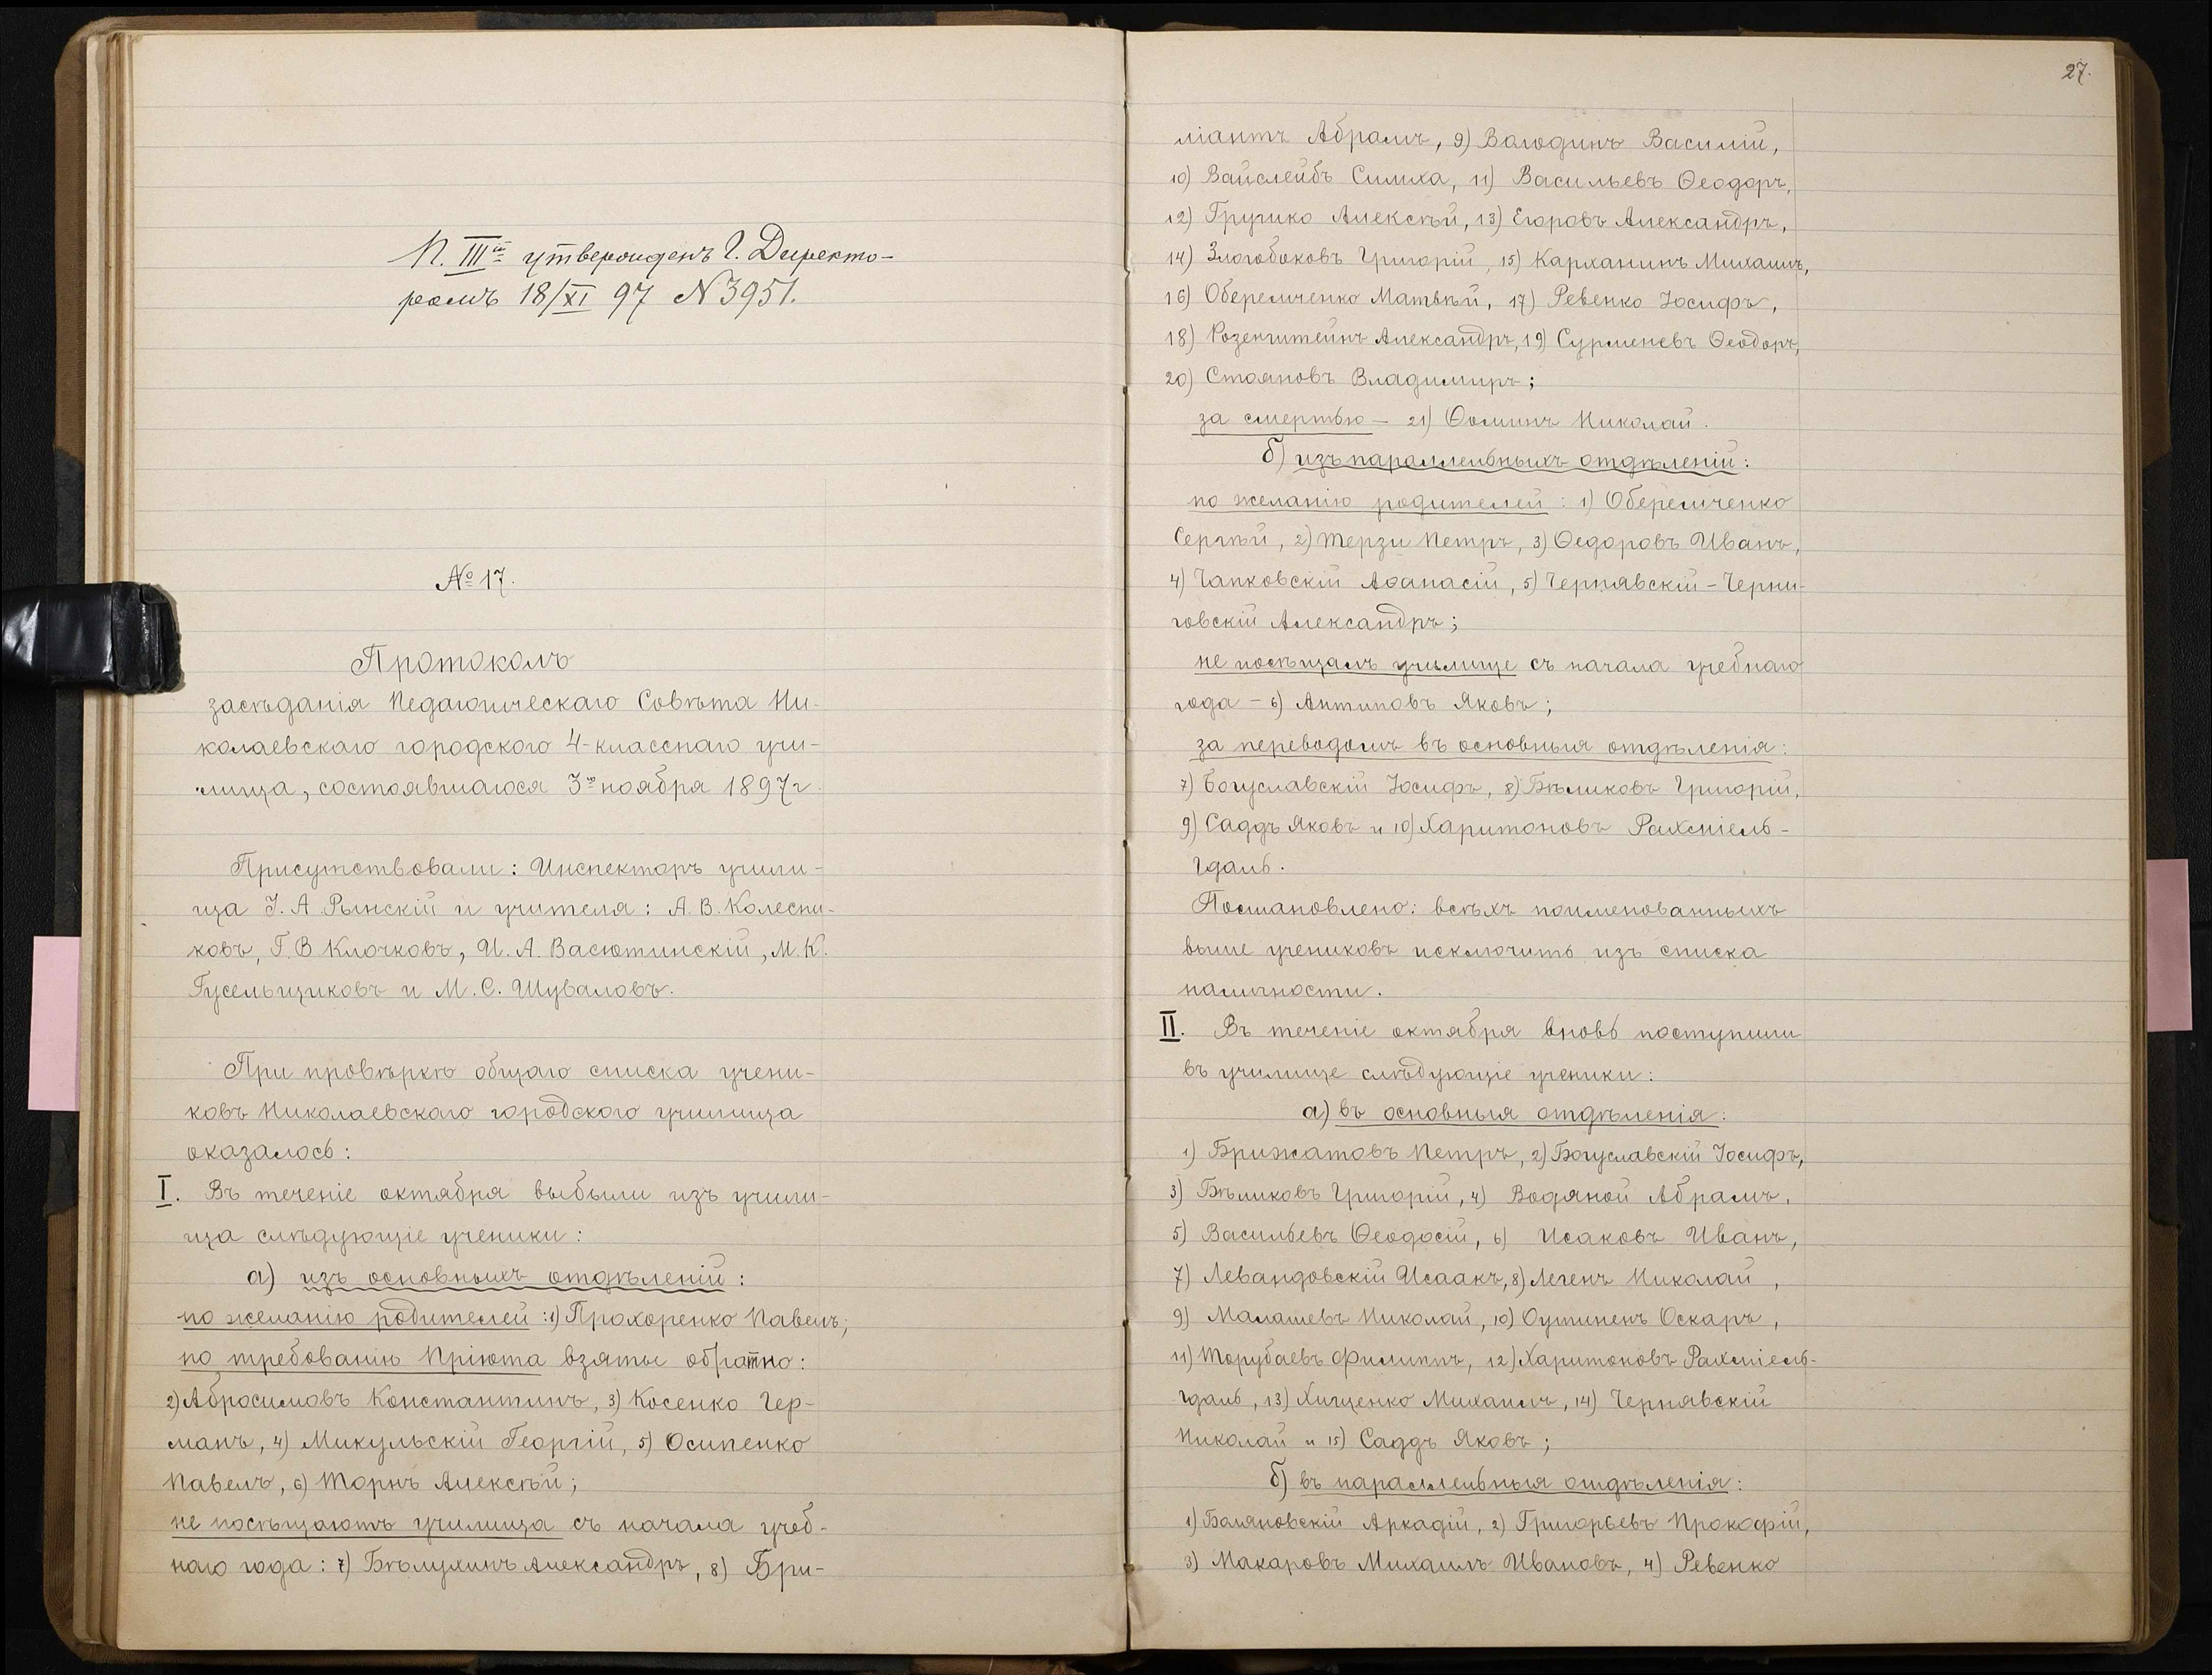 П. IIIій утвержденъ Г. Директо-
ромъ 18/XI 97 N 3951.
№ 17.
Протоколъ
засѣданія Педагогическаго Совѣта Ни-
колаевскаго городского 4-класснаго учи-
лища, состоявшагося 3го ноября 1897 г.
Присутствовали: Инспекторъ учили-
ща І. А. Рынскій и учителя: А. В. Колесни-
ковъ, Г. В. Клочковъ, И. А. Васютинскій, М. К.
Гусельщиковъ и М. С. Шуваловъ.
При провѣркѣ общаго списка учени-
ковъ Николаевскаго городского училища
оказалось:
I. Въ теченіе октября выбыли изъ учили-
ща слѣдующіе ученики:
а) изъ основныхъ отдѣленій:
по желанію родителей: 1) Прохоренко Павелъ;
по требованію Пріюта взяты обратно:
2) Абросимовъ Константинъ, 3) Косенко Гер-
манъ, 4) Микульскій Георгій, 5) Осипенко
Павелъ, 6) Торнъ Алексѣй;
не посѣщаютъ училища съ начала учеб-
наго года: 7) Бѣлухинъ Александръ, 8) Бри-
27.
ліантъ Абрамъ, 9) Володинъ Василій,
10) Вайслейбъ Симха, 11) Васильевъ Ѳеодоръ,
12) Гручко Алексѣй, 13) Егоровъ Александръ,
14) Злогобоковъ Григорій, 15) Карханинъ Михаилъ,
16) Оберемченко Матвѣй, 17) Ревенко Іосифъ,
18) Розенштейнъ Александръ, 19) Сурменевъ Ѳеодоръ,
20) Стояновъ Владимиръ;
за смертью – 21) Ѳоминъ Николай.
б) изъ параллельныхъ отдѣленій:
по желанію родителей: 1) Оберемченко
Сергѣй, 2) Терзи Петръ, 3) Ѳедоровъ Иванъ,
4) Чапковскій Аѳанасій, 5) Чернявскій-Черни-
говскій Александръ;
не посѣщалъ училище съ начала учебнаго
года – 6) Антиповъ Яковъ;
за переводомъ въ основныя отдѣленія:
7) Богуславскій Іосифъ, 8) Бѣликовъ Григорій,
9) Саддъ Яковъ и 10) Харитоновъ Рахміель-
Гдаль.
Постановлено: всѣхъ поименованныхъ
выше учениковъ исключить изъ списка
наличности.
II. Въ теченіе октября вновь поступили
въ училище слѣдующіе ученики:
а) въ основныя отдѣленія:
1) Брижатовъ Петръ, 2) Богуславскій Іосифъ,
3) Бѣликовъ Григорій, 4) Водяной Абрамъ,
5) Васильевъ Ѳеодосій, 6) Исаковъ Иванъ,
7) Левандовскій Исаакъ, 8) Легенъ Николай,
9) Малашевъ Николай, 10) Оутиненъ Оскаръ,
11) Торубаевъ Филиппъ, 12) Харитоновъ Рахміель-
Гдаль, 13) Хищенко Михаилъ, 14) Чернявскій
Николай и 15) Саддъ Яковъ;
б) въ параллельныя отдѣленія:
1) Боляновскій Аркадій, 2) Григорьевъ Прокофій,
3) Макаровъ Михаилъ Ивановъ, 4) Ревенко